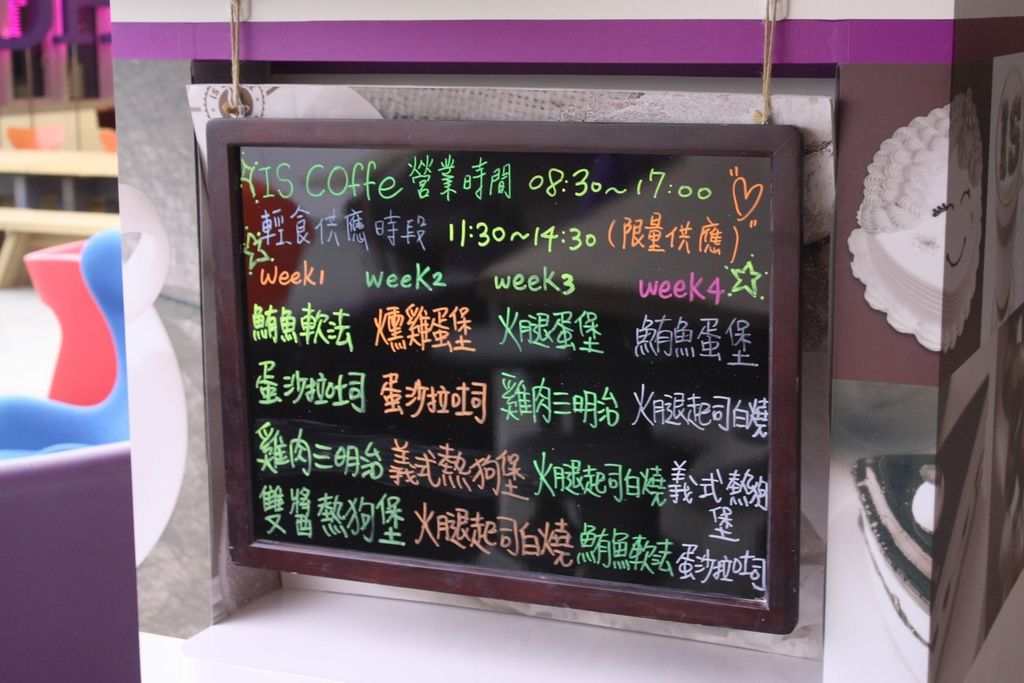 IS COffe 營業時間 08:30~17:00
輕食供應時段 11:30~14:30 (限量供應)
week1 week2 week3 week4
鮪魚軟法 燻雞蛋堡 火腿蛋堡 鮪魚蛋堡
蛋沙拉吐司 蛋沙拉吐司 雞肉三明治 火腿起司白燒
雞肉三明治 義式熱狗堡 火腿起司白燒 義式熱狗堡
雙醬熱狗堡 火腿起司白燒 鮪魚軟法 蛋沙拉吐司
IS
IS